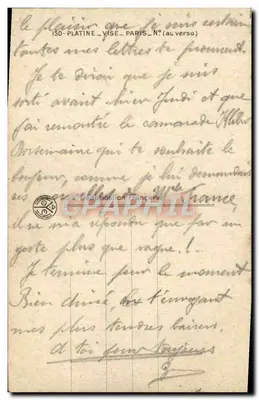 le plaisir que je suis certain
130 - PLATINE _ VISE _ PARIS _ No (au verso)
toutes mes lettres te procurent.
Je te dirai que je suis
sorti avant hier Jeudi et que
j'ai rencontré le camarade
qui te souhaite le
bonjour, comme je lui demandais
ses de Mlle France,
il ne m'a répondu que par un
geste plus que vague!.
Je termine pour le moment
Bien chérie, en t'envoyant
mes plus tendres baisers
à toi pour toujours